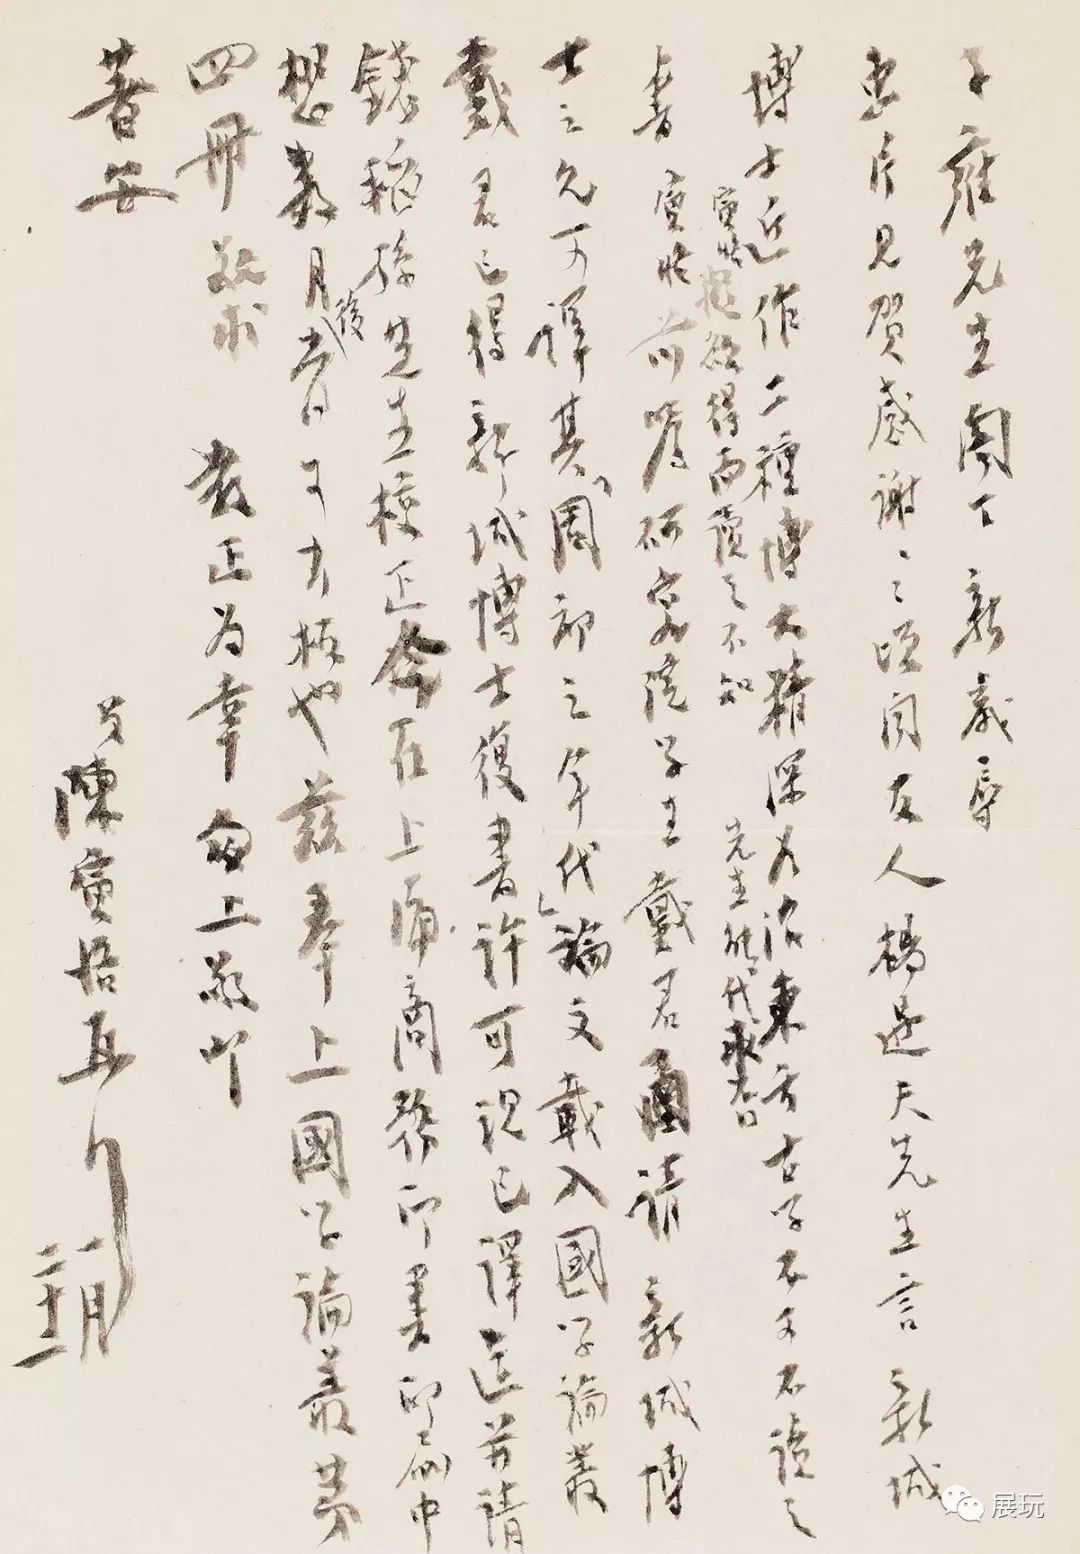 子雍先生閣下新歲辱
惠片見賀感謝之頃聞友人楊遇夫先生言新城
博士近作二種博大精深為治東方古學不可不讀之
書寅恪前嘱研究院學生戴君函請新城博
寅恪極欲得而讀之不知
先生能代求否
士之允可譯其「周初之年代」論文載入國學論叢
戴君已得新城博士復書許可現已譯迄並請
錢稻孫先生校正今在上海商務印書印刷中
想數月後當可出板也茲奉上國學論叢第
四冊敬求 教正為幸匆上敬叩
著安
弟陳寅恪再
一月
十二
展玩